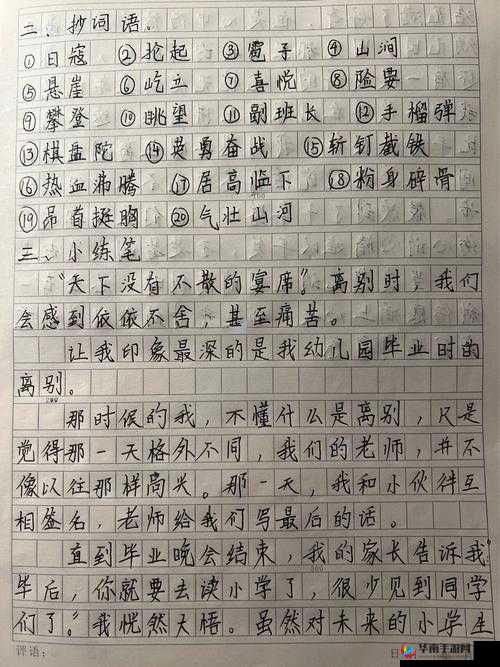 二、抄词语。
①日寇 ②抡起 ③雹子 ④山涧
⑤悬崖 ⑥屹立 ⑦喜悦 ⑧险要
⑨攀登 ⑩眺望 ⑪副班长 ⑫手榴弹
⑬棋盘陀 ⑭英勇奋战 ⑮斩钉截铁
⑯热血沸腾 ⑰居高临下 ⑱粉身碎骨
⑲昂首挺胸 ⑳气壮山河
三、小练笔
“天下没有不散的宴席”。离别时,我们
会感到依依不舍,甚至痛苦。
让我印象最深的是我幼儿园毕业时的
离别。
200
那时候的我,不懂什么是离别,只是
觉得那一天格外不同,我们的老师,并不
像以往那样高兴。那一天,我和小伙伴互
相签名,老师给我们写最后的话。
直到毕业晚会结束,我的家长告诉我“
300
毕后,你就要去读小学了,很少见到同学
们了。”我恍然大悟。虽然对未来的小学生
评语:
日
华南手游网